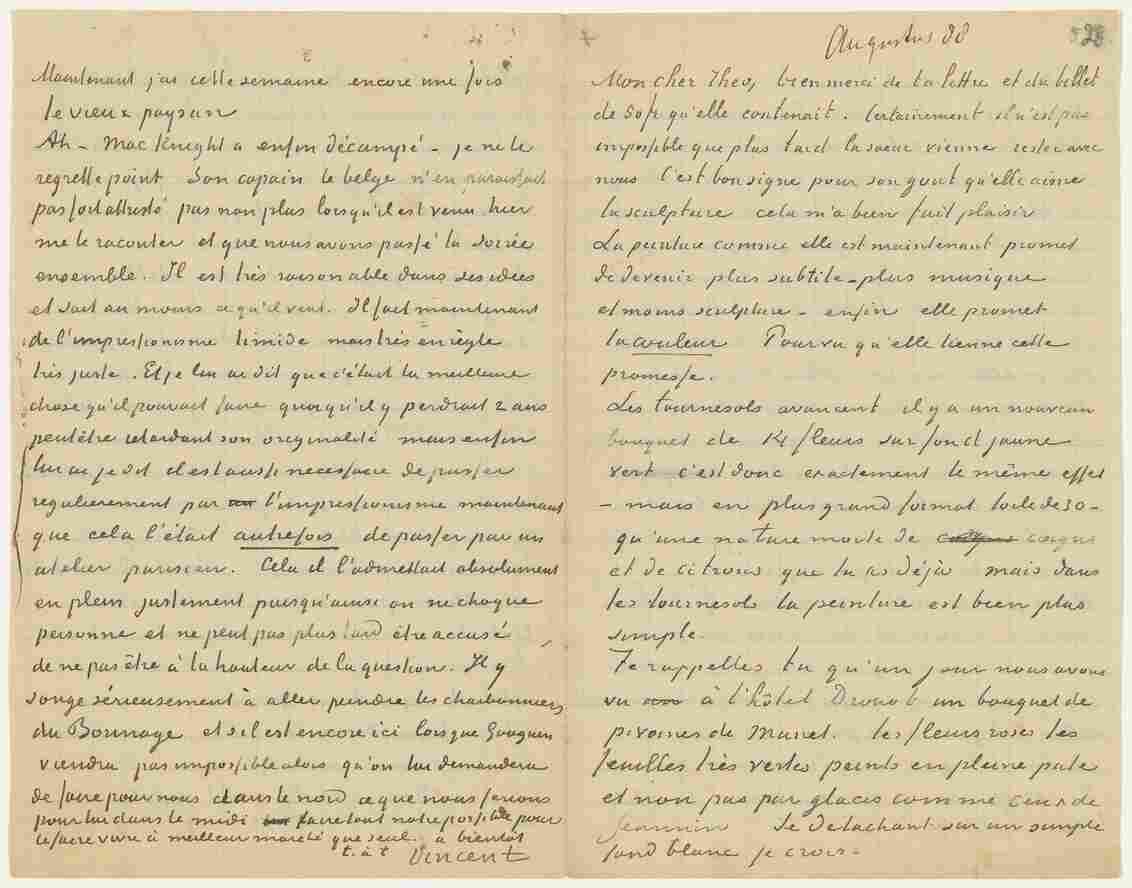 Maintenant j'ai cette semaine encore une fois
le vieux paysan
Ah – Mac Knight a enfin décampé – je ne le
regrette point Son copain le belge n'en paraissait
pas fort attristé pas non plus lorsqu'il est venu hier
me le raconter et que nous avons passé la soirée
ensemble. Il est très raisonable dans ses idées
et sait au moins ce qu'il veut. Il fait maintenant
de l'impressionisme timide mais très en règle
très juste. Et je lui ai dit que c'était la meilleure
chose qu'il pouvait faire quoiqu'il y perdrait 2 ans
peutêtre retardant son originalité mais enfin
lui ai je dit il est aussi necessaire de passer
regulierement par l'impressionisme maintenant
que cela l'était autrefois de passer par un
atelier parisien. Cela il l'admettait absolument
en plein justement puisqu'ainsi on ne choque
personne et ne peut pas plus tard être accusé
de ne pas être à la hauteur de la question. Il y
songe sérieusement à aller peindre les charbonniers
du Borinage et s'il est encore ici lorsque Gauguin
viendra pas impossible alors qu'on lui demandera
de faire pour nous dans le nord ce que nous ferions
pour lui dans le midi faire tout notre possible pour
le faire vivre à meilleur marché que seul. à bientôt
t. à t Vincent
Augustus 88
28
Mon cher Theo, bien merci de ta lettre et du billet
de 50 fr qu'elle contenait. Certainement il n'est pas
impossible que plus tard la soeur vienne rester avec
nous C'est bon signe pour son gout qu'elle aime
la sculpture cela m'a bien fait plaisir
La peinture comme elle est maintenant promet
de devenir plus subtile – plus musique
et moins sculpture – enfin elle promet
la couleur Pourvu qu'elle tienne cette
promesse.
Les tournesols avancent il y a un nouveau
bouquet de 14 fleurs sur fond jaune
vert c'est donc exactement le même effet
– mais en plus grand format toile de 30 –
qu'une nature morte de coings
et de citrons que tu as déjà mais dans
les tournesols la peinture est bien plus
simple.
Te rappelles tu qu'un jour nous avons
vu à l'hôtel Drouot un bouquet de
pivoines de Manet. les fleurs roses les
feuilles très vertes peints en pleine pate
et non pas par glacis comme ceux de
Jeannin Se detachant sur un simple
fond blanc je crois.